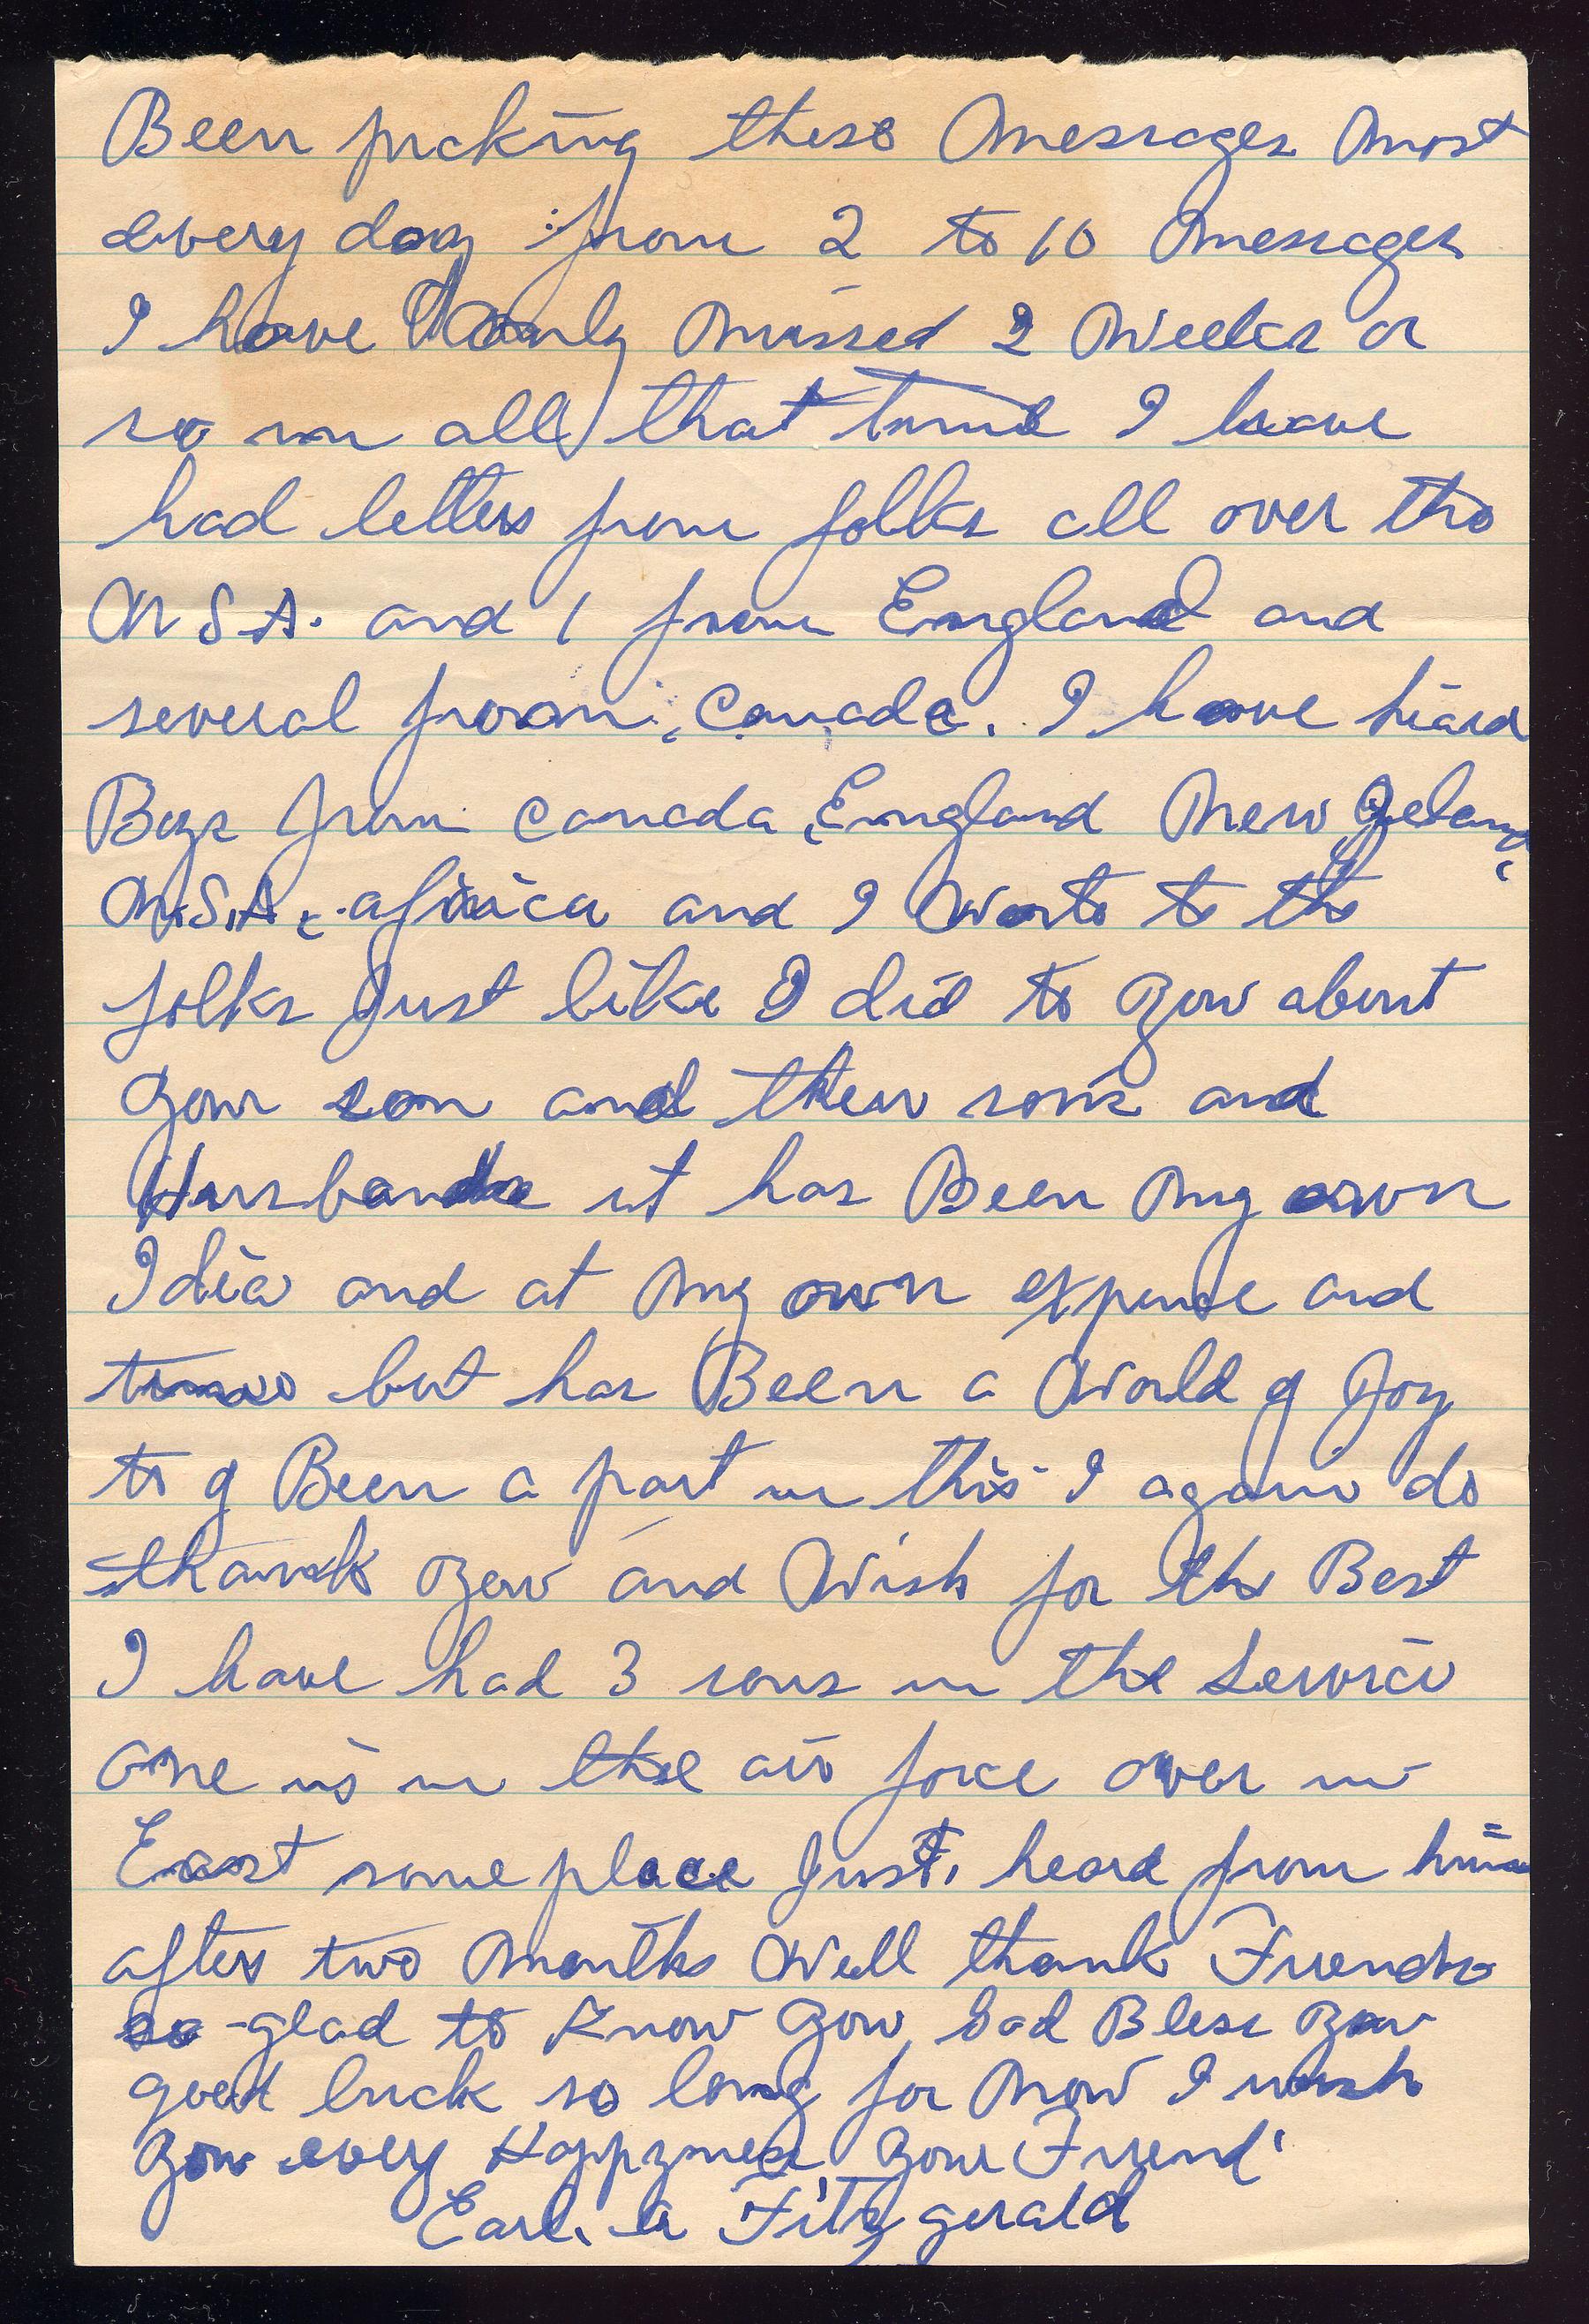 Been picking these messages most
every day from 2 to 10 messages
I have only missed 2 weeks or
so in all that time I have
had letters from folks all over the
U S A. and 1 from England and
several from, Canada. I have heard
Boys from Canada, England New Zeland,
U.S.A, africa and I wrote to the
folks Just like I did to you about
your son and their sons and
Husbands it has Been my own
Idea and at my own expence and
time but has Been a World of Joy
to of Been a part in this I again do
thank you and Wish for the Best
I have had 3 sons in the Service
one is in the air force over in
East some place Just heard from him
after two months Well thank Friends
so glad to Know you, God Bless you
good luck so long for now I wish
you every Happyness your Friend
Earl. a Fitzgerald